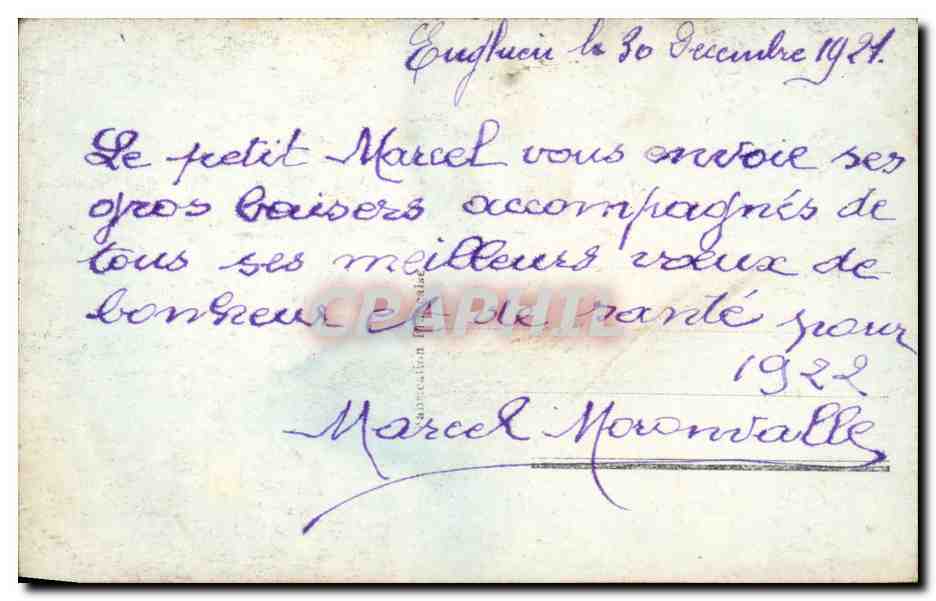 Enghien le 30 Decembre 1921.
Le petit Marcel vous envoie ses
gros baisers accompagnés de
tous ses meilleurs vœux de
bonheur et de santé pour
1922
Marcel Moronvalle
CPAPHIL
Fabrication Française